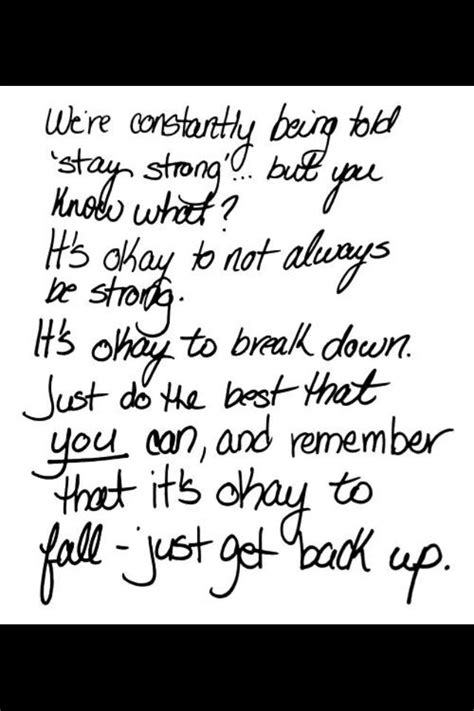 We're constantly being told
'stay strong'... but you
know what?
It's okay to not always
be strong.
It's okay to break down.
Just do the best that
you can, and remember
that it's okay to
fall - just get back up.